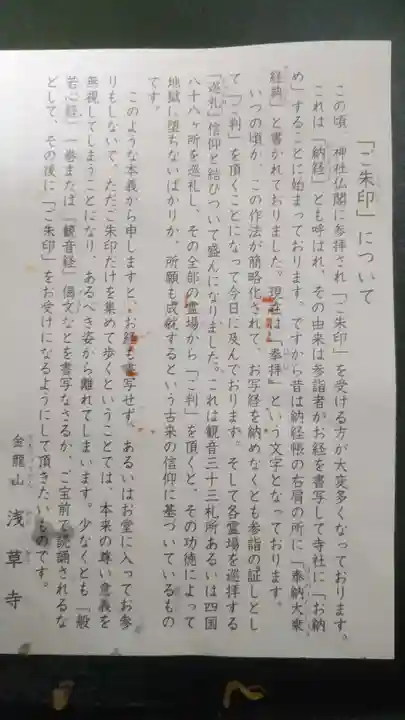 「ご朱印」について
この頃　神社仏閣に参拝され「ご朱印」を受ける方が大変多くなっております。
これは「納経」とも呼ばれ、その由来は参詣者がお経を書写して寺社に「お納
め」することに始まっております。ですから昔は納経帳の右肩の所に「奉納大乗
経典」と書かれておりました。現在は「奉拝」という文字となっております。
いつの頃か、この作法が簡略化されて、お写経を納めなくとも参詣の証しとし
て「ご判」を頂くことになって今日に及んでおります。そして各霊場を巡拝する
「巡礼」信仰と結びついて盛んになりました。これは観音三十三札所あるいは四国
八十八ヶ所を巡礼し、その全部の霊場から「ご判」を頂くと、その功徳によって
地獄に堕ちないばかりか、所願も成就するという古来の信仰に基づいているもの
です。
このような本義から申しますと、お経も書写せず、あるいはお堂に入ってお参
りもしないで、ただご朱印だけを集めて歩くということでは、本来の尊い意義を
無視してしまうことになり、あるべき姿から離れてしまいます。少なくとも「般
若心経」一巻または「観音経」偈文などを書写なさるか、ご宝前で読誦されるな
どして、その後に「ご朱印」をお受けになるようにして頂きたいものです。
金龍山　浅草寺